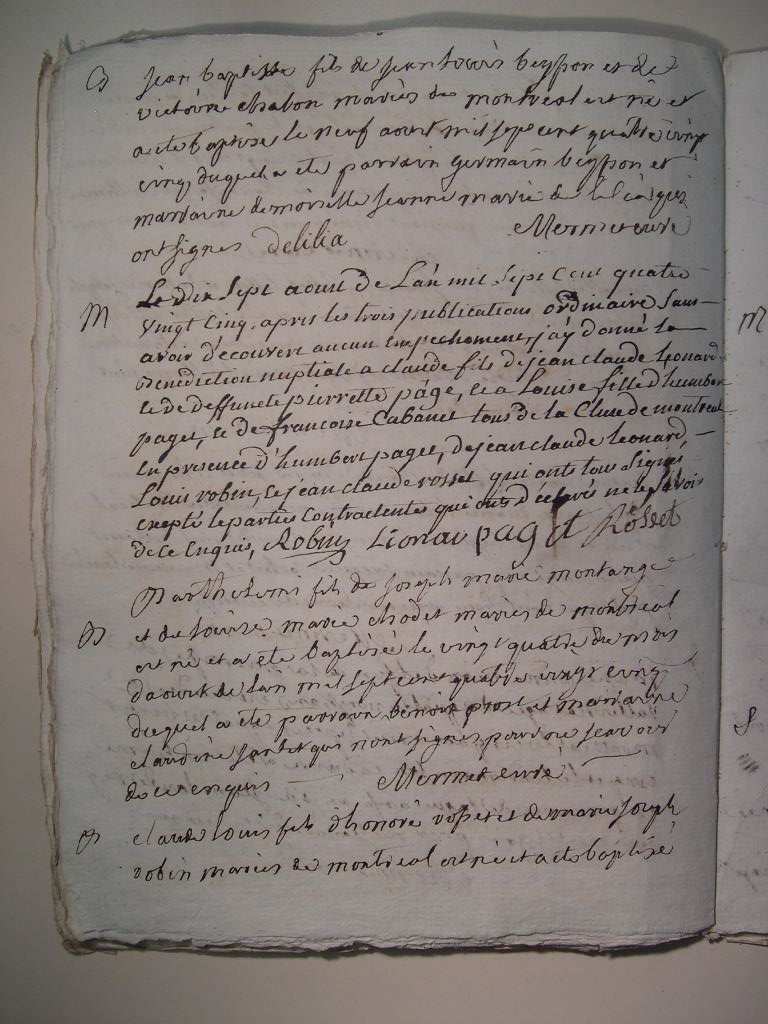 B jean baptiste fils de jean louis beysson et de
victoire chabon mariés de montreal est né et
a ete baptise le neuf aout mil sept cent quatre vingt
cinq, duquel a ete parrain germain beysson et
marraine demoiselle jeanne marie de lilia qui
ont signes delilia Mermet curé
M Le Dix Sept aoust de L'an mil Sept Cent quatre
Vingt Cinq, apres les trois publications ordinaire Sans
avoir d'ecouvert aucun empechement, j'ay donné la
Benediction nuptiale a claude fils de jean claude Leonard
et de deffuncte pierrette page, et a Louise fille d'humbert
paget, et de francoise Cabanet tous de la Cluse de montreal
En presence d'humbert paget, de jean claude leonard,
Louis robin, et jean claude rosset qui ont tous Signés
Excepté le parties Contractentes qui ont déclarés ne le Savoir
de Ce Enquis, Robin Lionar paget Rosset
Barthelemi fils de joseph marie montange
B et de louise marie chodet mariés de montreal
est né et a ete baptisé le vingt quatre du mois
d'aout de l'an mil sept cent quatre vingt cinq
duquel a ete parrain benoit prost et marraine
claudine jantet qui n'ont signes pour ne scavoir
de ce enquis Mermet curé
B claude louis fils d'honoré rosset et de marie joseph
robin mariés de montreal est né et a ete baptisé
M
S